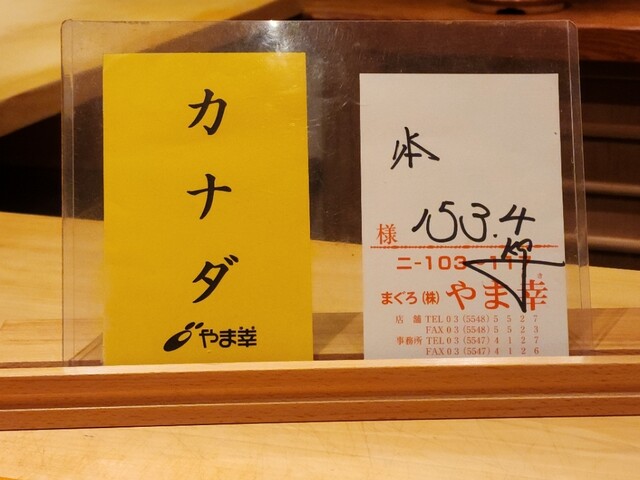 カナダ
やま幸
様
153.4
kg
ニ-103-11
まぐろ(株)やま幸
店舗 TEL 03 (5548) 5527
FAX 03 (5548) 5523
事務所 TEL 03 (5547) 4127
FAX 03 (5547) 4126